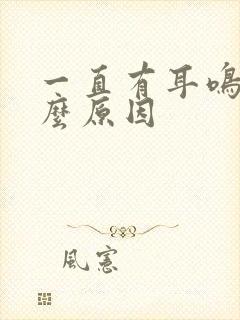 一直有耳鳴
麼原因
風憲